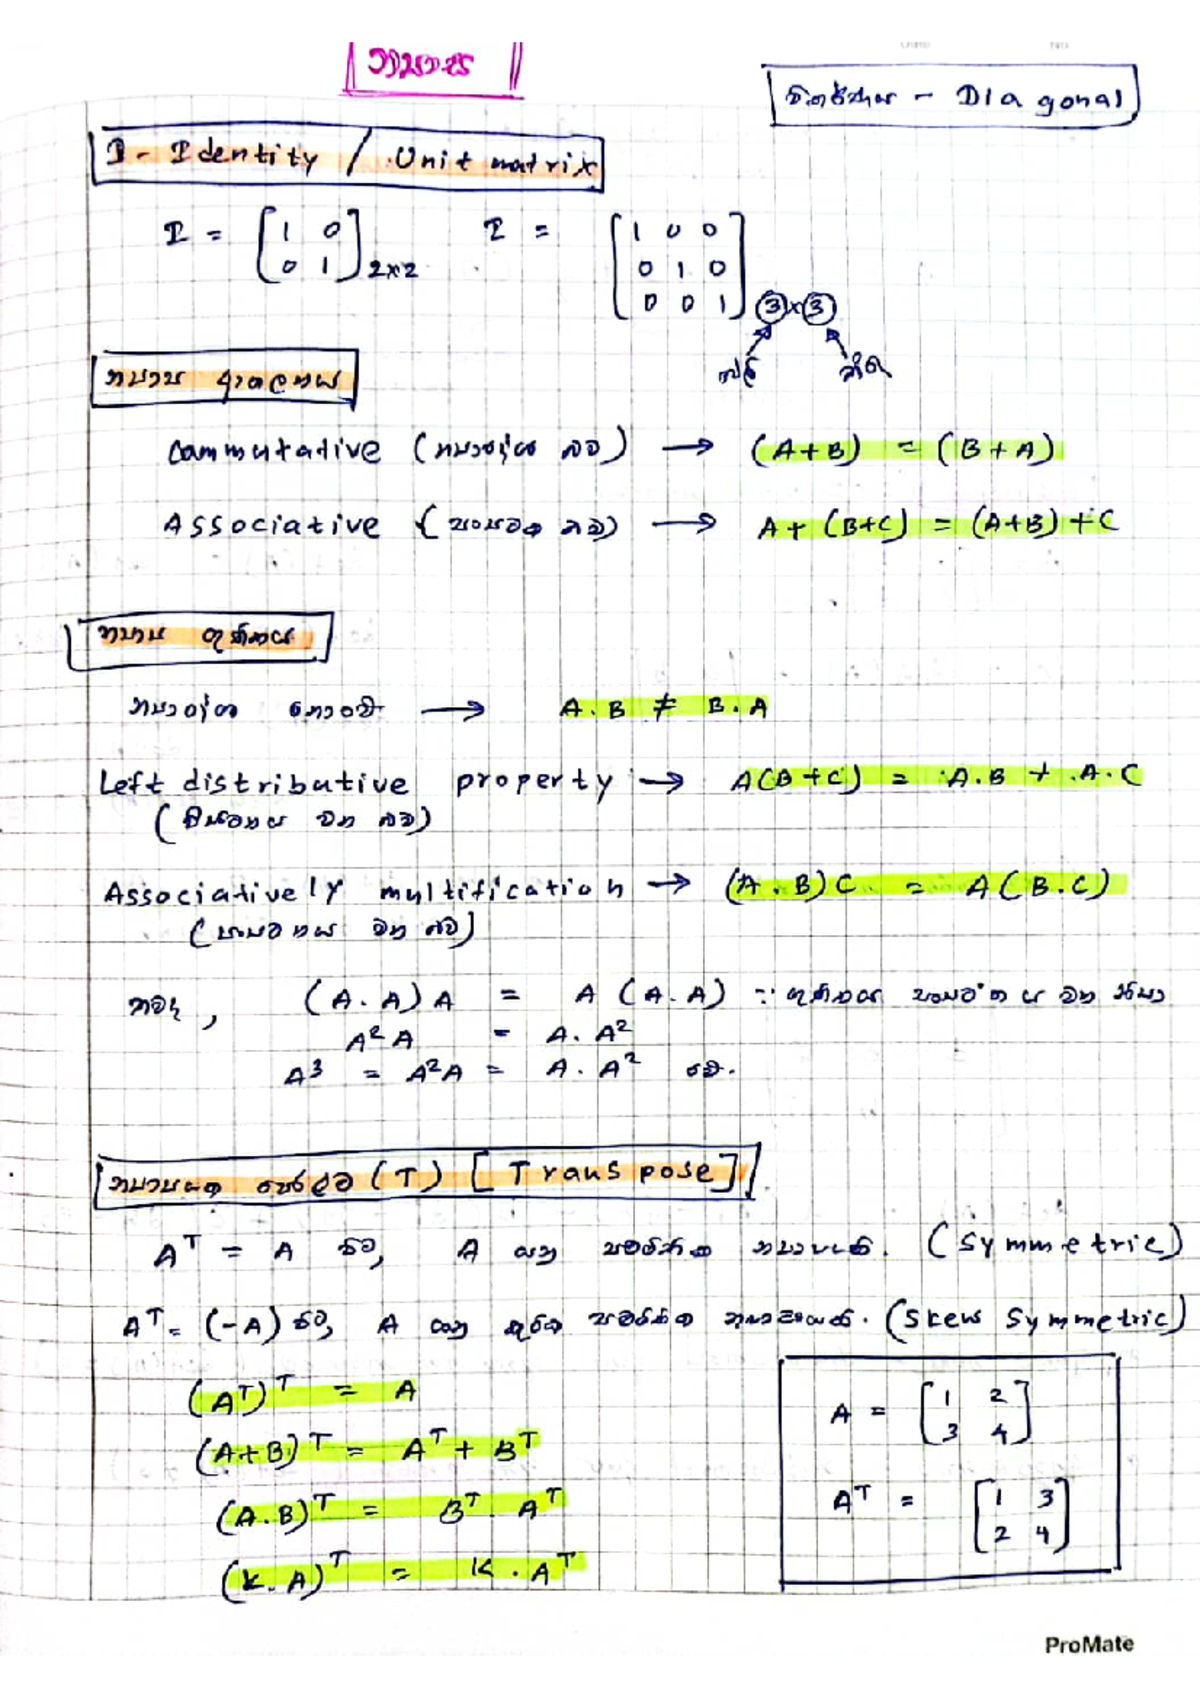 න්‍යාස
විකර්ණය - Diagonal
I - Identity / Unit matrix
I = [1 0
0 1] 2x2
I = [1 0 0
0 1 0
0 0 1] 3x3
පේළි තීර
න්‍යාස
Commutative (න්‍යාදේශ බව) → (A+B) = (B+A)
Associative ( බව) → A+(B+C) = (A+B)+C
න්‍යාස ගුණිතය
න්‍යාදේශ නොවේ → A.B ≠ B.A
Left distributive property → A(B+C) = A.B + A.C
( වන බව)
Associatively multification → (A.B)C = A(B.C)
( වන බව)
තවද, (A.A)A = A(A.A) ∵ ගුණිතය වන නිසා
A² A = A. A²
A³ = A²A = A. A² වේ.
න්‍යාසයක පෙරළුම (T) [Transpose]
Aᵀ = A විට, A යනු සමමිතික න්‍යාසයකි. (Symmetric)
Aᵀ = (-A) විට, A යනු කුටික සමමිතික න්‍යාසයකි. (Skew Symmetric)
(Aᵀ)ᵀ = A
(A+B)ᵀ = Aᵀ + Bᵀ
(A.B)ᵀ = Bᵀ. Aᵀ
(K.A)ᵀ = K. Aᵀ
A = [1 2
3 4]
Aᵀ = [1 3
2 4]
ProMate